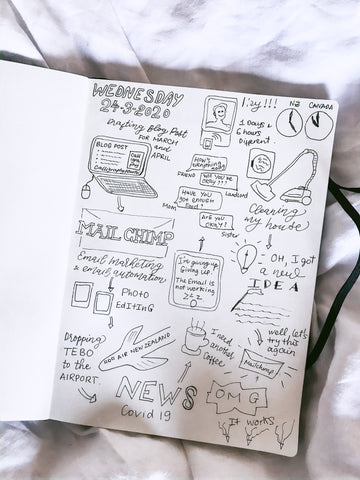 WEDNESDAY
24-3-2020
Drafting Blog Post
FOR MARCH
and
APRIL
BLOG POST
NZ CANADA
1 Days &
6 hours
Different.
How's
everything?
FRIEND
Will you be
okay???
Landlord
HAVE YOU
got ENOUGH
Food?
Mom
Are you
okay?
Sister
Cleaning
my house
MAIL CHIMP
Email marketing
& email automation
I'm giving up
Giving up!
The Email is
not working
>.<
OH, I got
a new
IDEA
PhoTo
EdITInG
well, let's
try this
again
Mailchimp!
Dropping
TEBO
to the
AIRPORT.
AIR NEW ZEALAND
I need
another
Coffee
NEWS
Covid 19
OMG
It works